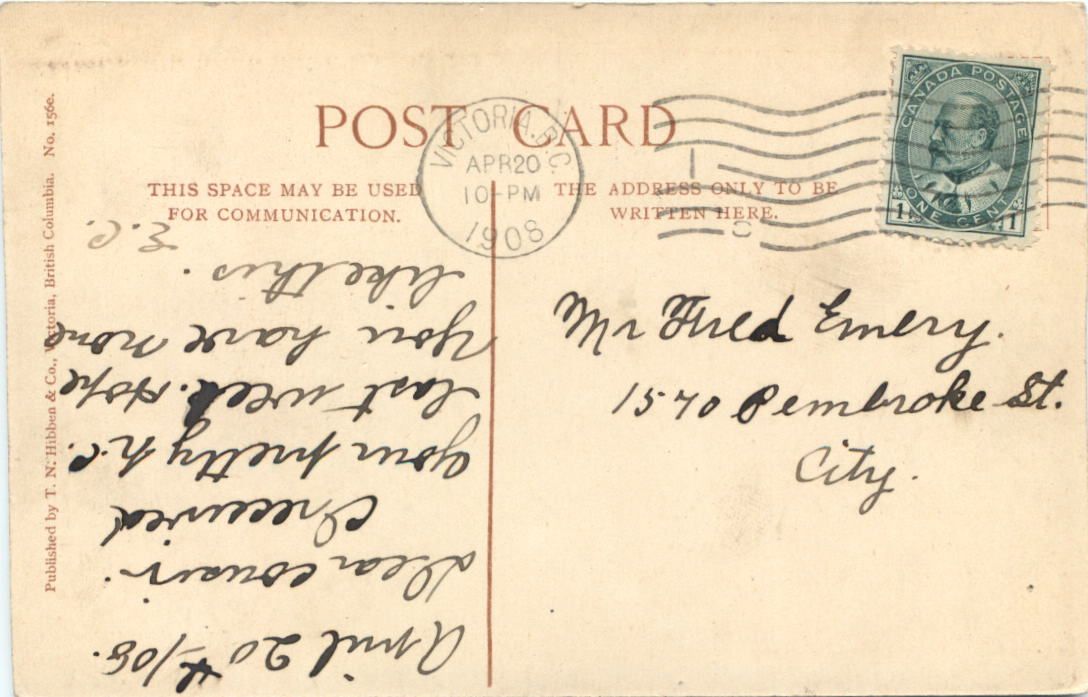 POST CARD
THIS SPACE MAY BE USED
FOR COMMUNICATION.
THE ADDRESS ONLY TO BE
WRITTEN HERE.
VICTORIA, B.C.
APR 20
10-PM
1908
CANADA POSTAGE
1 ONE CENT 1
Mr Fred Emery.
1570 Pembroke St.
City.
April 20th/08.
Dear cousin.
I received
your pretty p.c.
last week. Hope
you have none
like this.
E.C.
Published by T. N. Hibben & Co., Victoria, British Columbia. No. 156e.